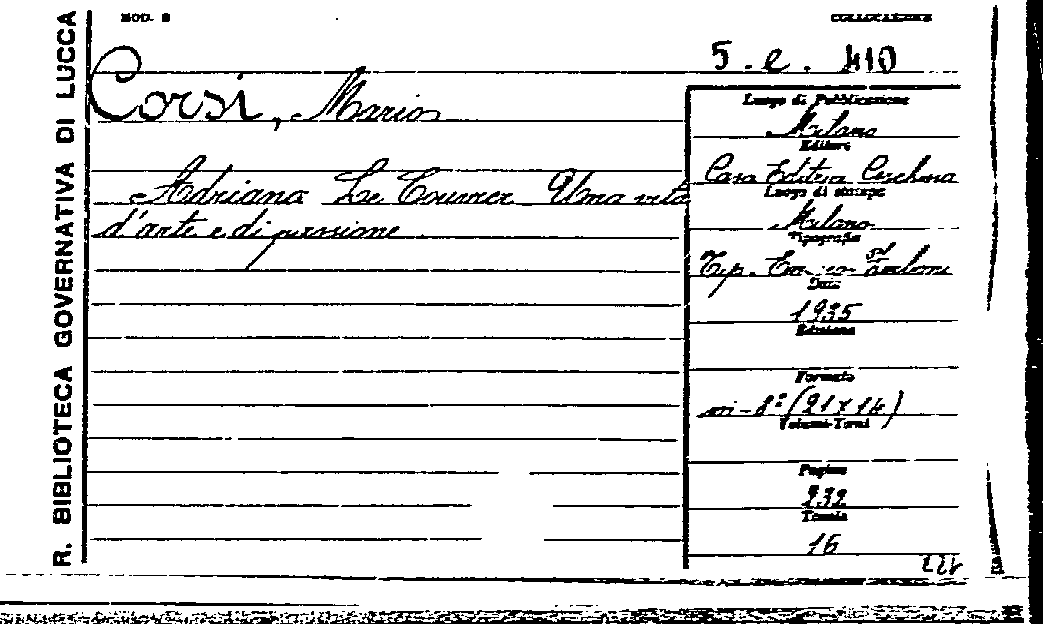 R. BIBLIOTECA GOVERNATIVA DI LUCCA
MOD. 8
COLLOCAZIONE
5. e. 410
Corsi, Mario
Adriana Le Couvrer Una vita
d'arte e di passione
Luogo di Pubblicazione
Milano
Editore
Casa Editrice Ceschina
Luogo di stampa
Milano
Tipografia
Tip. Enrico
Data
1935
Edizione
Formato
in-8º (21 x 14)
Volumi-Tomi
Pagine
232
Tavole
16